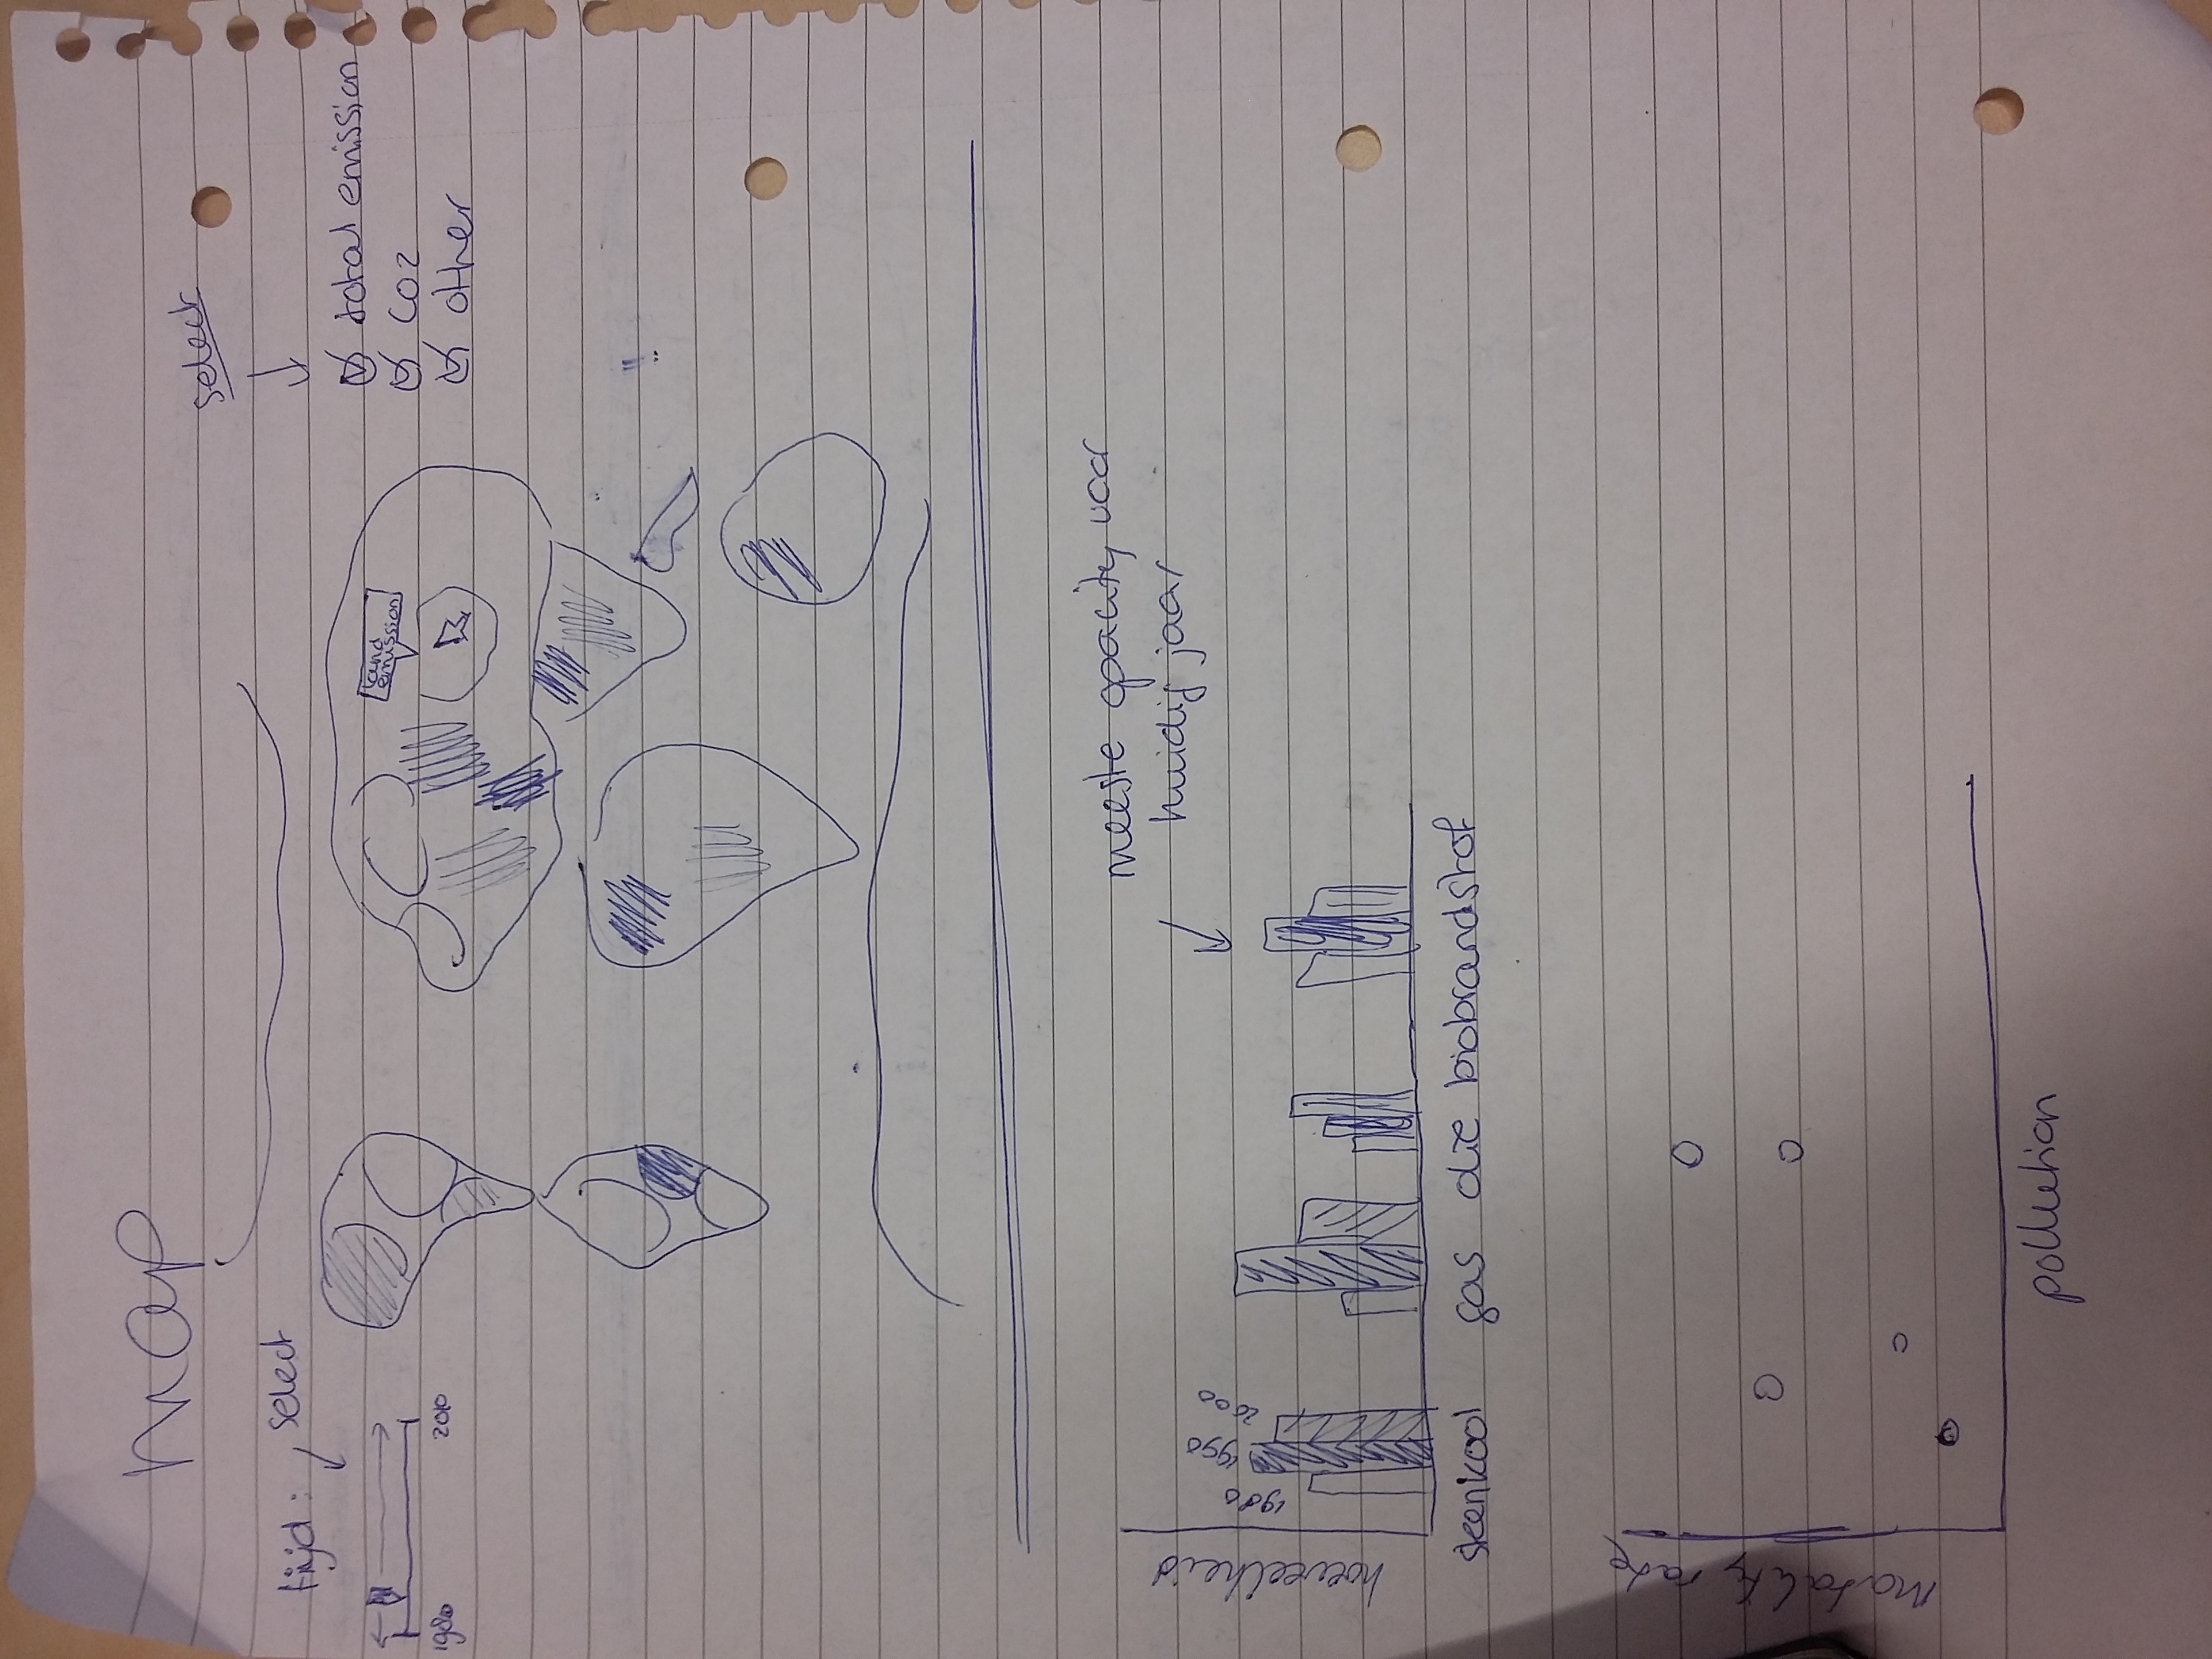 map
select
tijd: select
1980 2010
total emission
CO2
other
land
emission
!!
meeste opacity voor
huidig jaar
hoeveelheid
1980 1990 2000
steenkool gas olie biobrandstof
Mortality rate
pollution